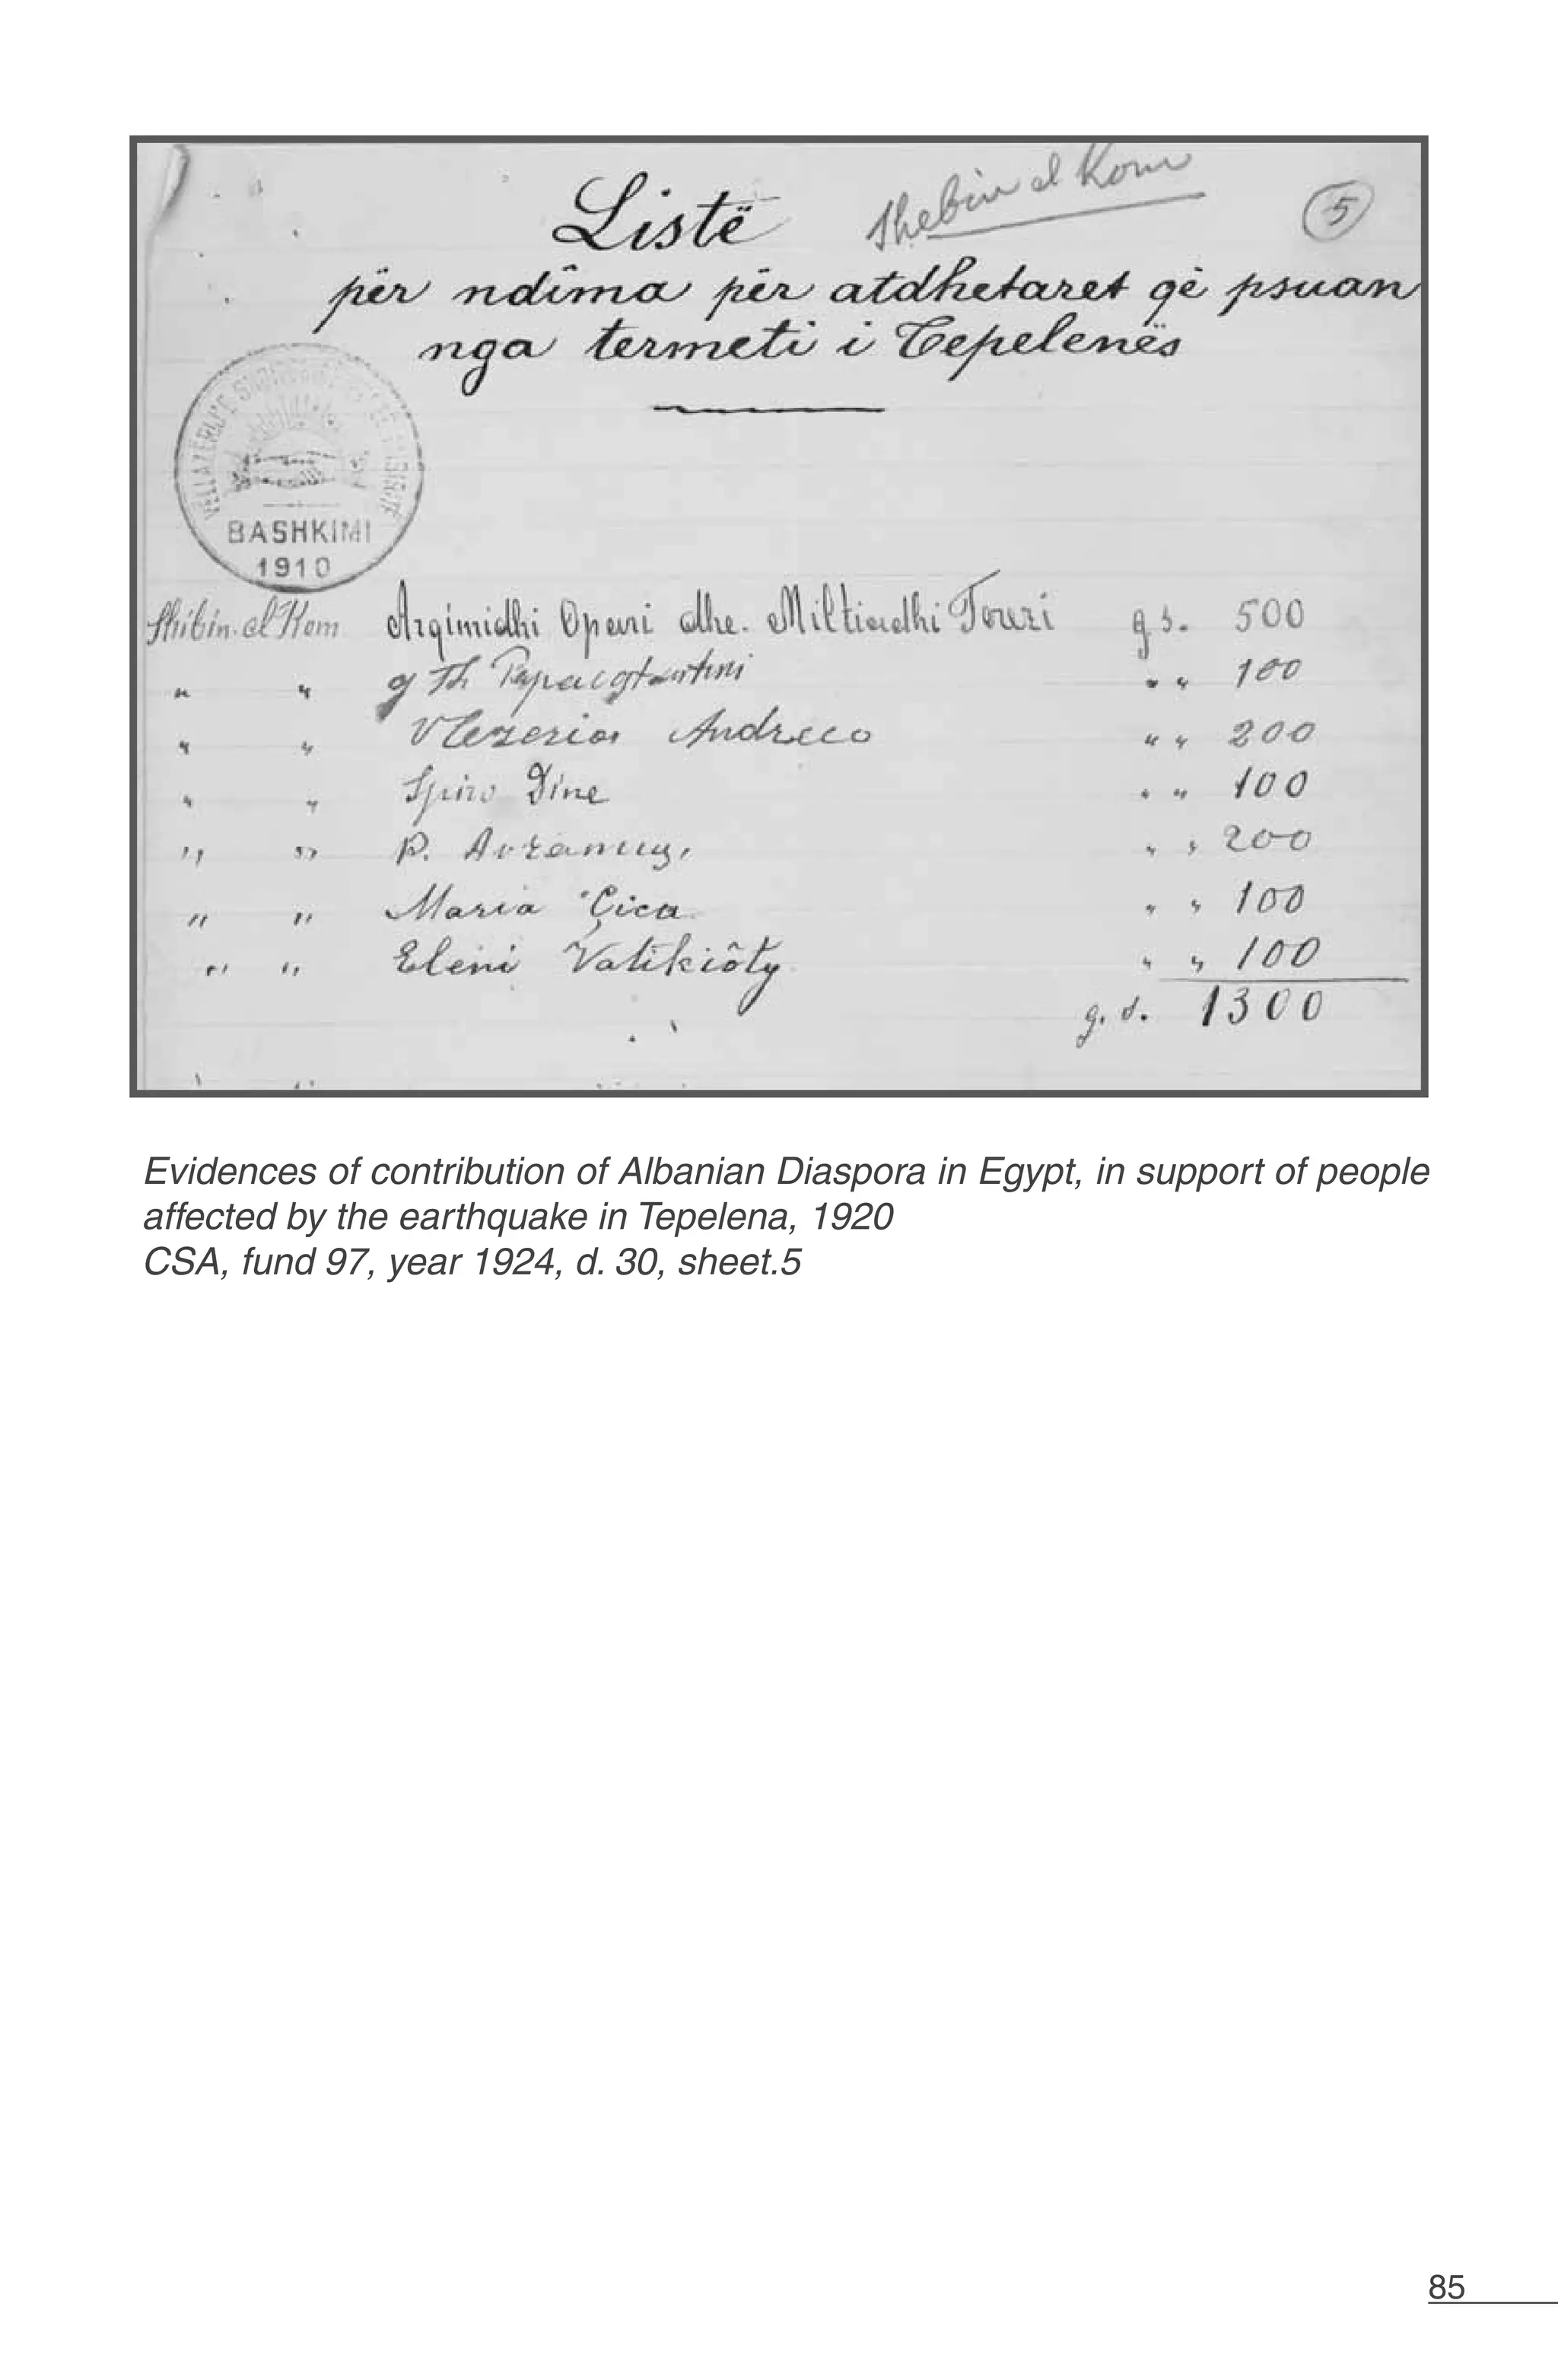 Listë
Shebin el Kom
5
për ndîma për atdhetaret që psuan
nga termeti i Tepelenës
VËLLAZERIJ E
BASHKIMI
1910
Shibin-el Kom Arqimidhi Opari dhe. Miltiadhi Toruzi g s. 500
" " g Th " " 100
" " Vllezeria Andreco " " 200
" " Spiro Dine " " 100
" " P. Avramuy, " " 200
" " Maria Çica " " 100
" " Eleni Vatikiôty " " 100
g. d. 1300
Evidences of contribution of Albanian Diaspora in Egypt, in support of people
affected by the earthquake in Tepelena, 1920
CSA, fund 97, year 1924, d. 30, sheet.5
85